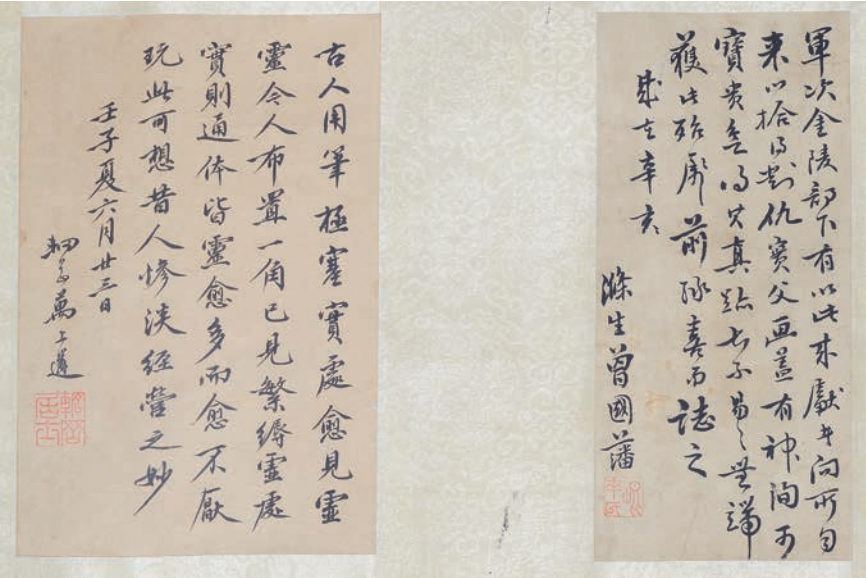 軍次金陵部下有以此來獻者問所自
來以拾得對仇實父画蓋有神詢可
寶貴得其真跡者不易々無端
獲此殆所前緣喜而誌之
時在辛亥
滌生曾國藩
古人用筆極塞實處愈見虛
靈今人布置一角已見繁縟靈處
實則通体皆靈愈多而愈不厭
玩此可想昔人慘淡經營之妙
壬子夏六月廿三日
萬上遴